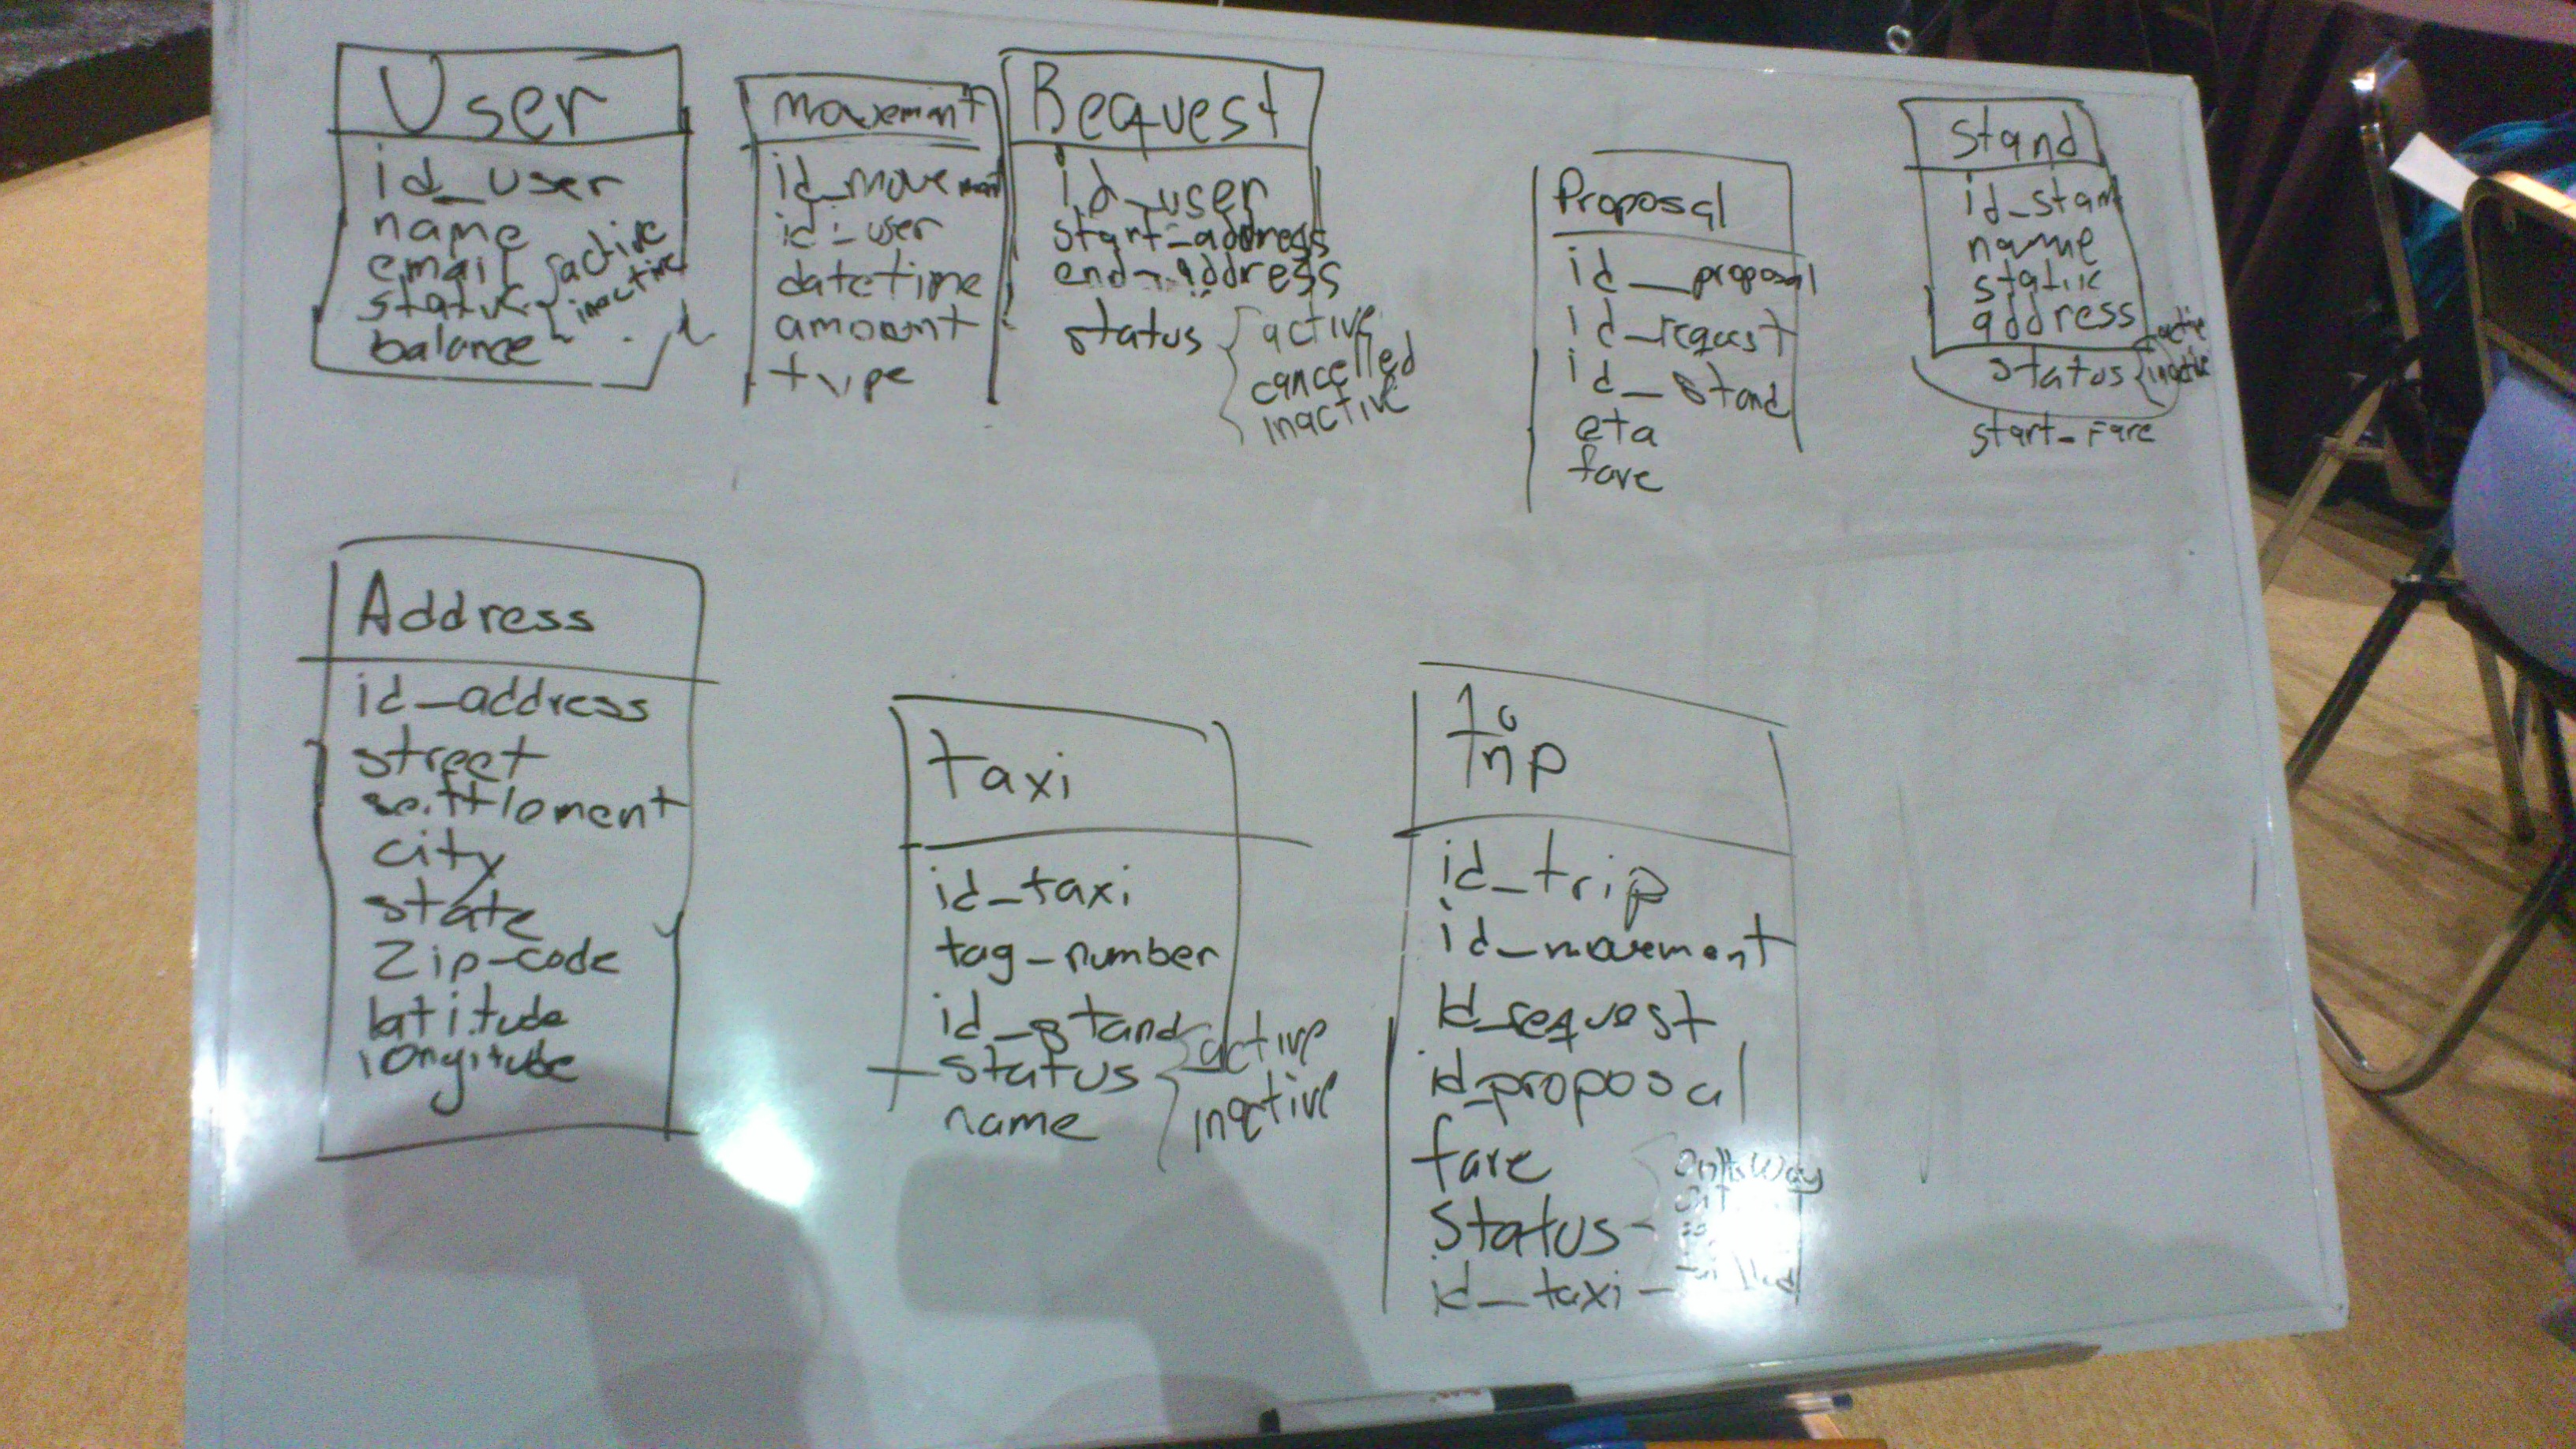 User
id_user
name
email
status { active
inactive
balance
movement
id_movement
id_user
datetime
amount
type
Request
id_user
start_address
end_address
status { active
cancelled
inactive
Proposal
id_proposal
id_request
id_stand
eta
fare
Stand
id_stand
name
address
status { active
inactive
start_fare
Address
id_address
street
settlement
city
state
Zip-code
latitude
longitude
taxi
id_taxi
tag_number
id_stand
status { active
inactive
name
trip
id_trip
id_movement
id_request
id_proposal
fare
Status
id_taxi